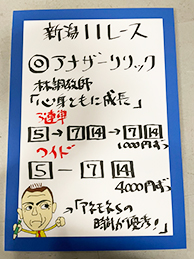 新潟11レース
◎アナザーリリック
林調教師
「心身ともに成長」
3連単
5→7 14→7 14
1000円ずつ
ワイド
5―7 14
4000円ずつ
→「アネモネSの
時計が優秀!」